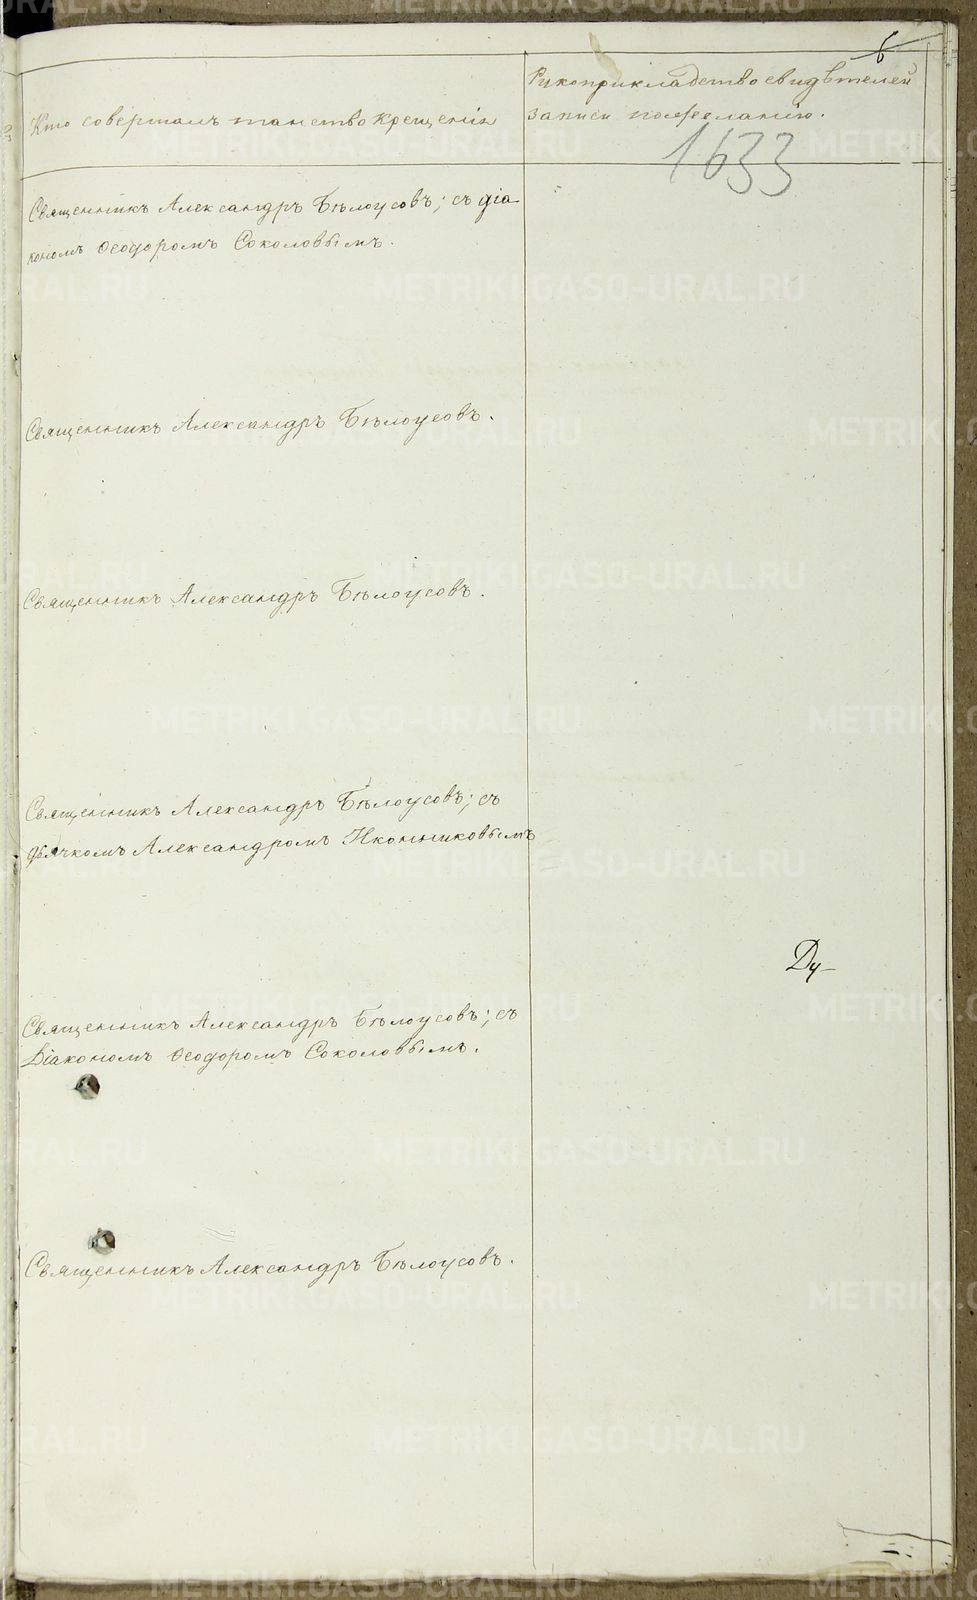 6
Кто совершалъ таинство крещенія
Рукоприкладство свидѣтелей
записи по желанію.
1633
Священникъ Александръ Бѣлоусовъ; съ діа-
кономъ Ѳеодоромъ Соколовымъ.
Священникъ Александръ Бѣлоусовъ.
Священникъ Александръ Бѣлоусовъ.
Священникъ Александръ Бѣлоусовъ; съ
дьячкомъ Александромъ Иконниковымъ
Ду-
Священникъ Александръ Бѣлоусовъ; съ
Діакономъ Ѳеодоромъ Соколовымъ.
Священникъ Александръ Бѣлоусовъ.
METRIKI.GASO-URAL.RU